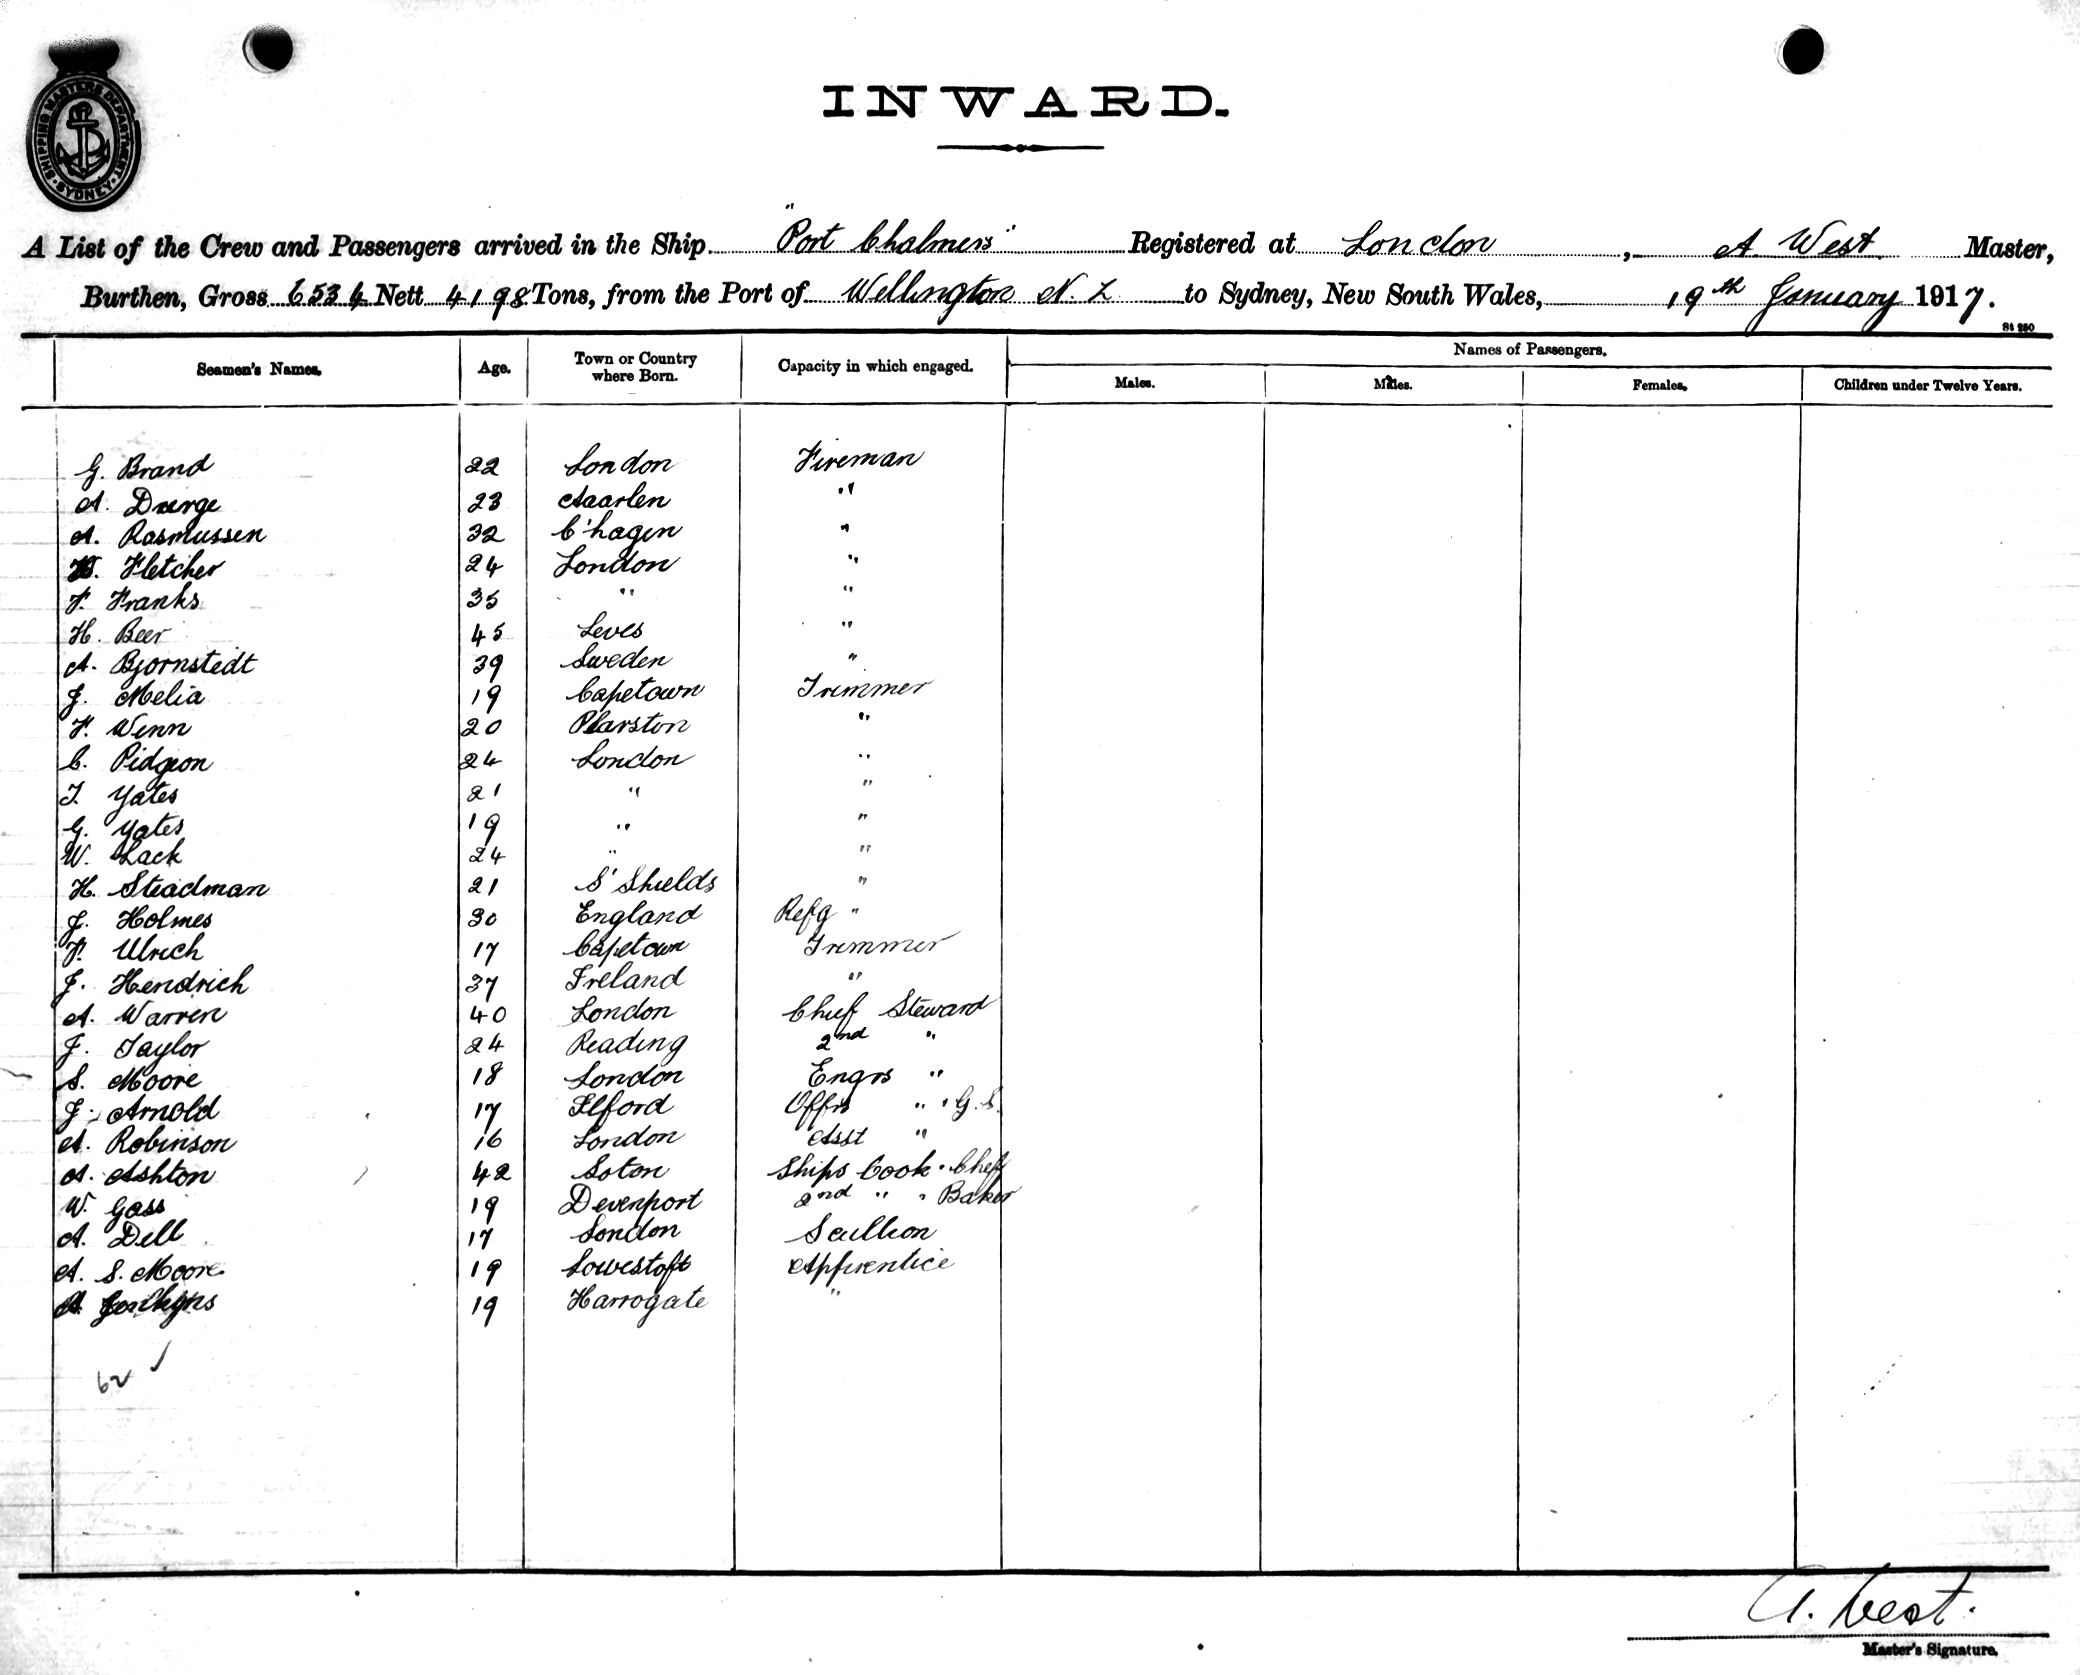 SHIPPING MASTERS DEPARTMENT · SYDNEY ·
INWARD.
A List of the Crew and Passengers arrived in the Ship "Port Chalmers" Registered at London, A. West Master,
Burthen, Gross 6534 Nett 4198 Tons, from the Port of Wellington N.Z to Sydney, New South Wales, 19th January 1917.
St 250
Seamen's Names. Age. Town or Country where Born. Capacity in which engaged. Names of Passengers.
Males. Males. Females. Children under Twelve Years.
G. Brand 22 London Fireman
A. Duerge 23 Aaarlen "
A. Rasmussen 32 C'hagen "
Fletcher 24 London "
F. Franks 35 " "
H. Beer 45 Leves "
A. Bjornstedt 39 Sweden "
J. Melia 19 Capetown Trimmer
F. Wenn 20 Plarston "
C. Pidgeon 24 London "
T. Yates 21 " "
G. Yates 19 " "
W. Lack 24 " "
H. Steadman 21 S' Shields "
J. Holmes 30 England Refg "
F. Ulrich 17 Capetown Trimmer
J. Hendrich 37 Ireland "
A. Warren 40 London Chief Steward
J. Taylor 24 Reading 2nd "
S. Moore 18 London Engrs "
J. Arnold 17 Ilford Offrs " . G.S.
A. Robinson 16 London Asst "
A. Ashton 42 Soton Ships Cook . Chef
W. Goss 19 Devenport 2nd " . Baker
A. Dell 17 London Scullion
A. S. Moore 19 Lowestoft Apprentice
Jenkyns 19 Harrogate "
62 ✓
A. West.
Master's Signature.